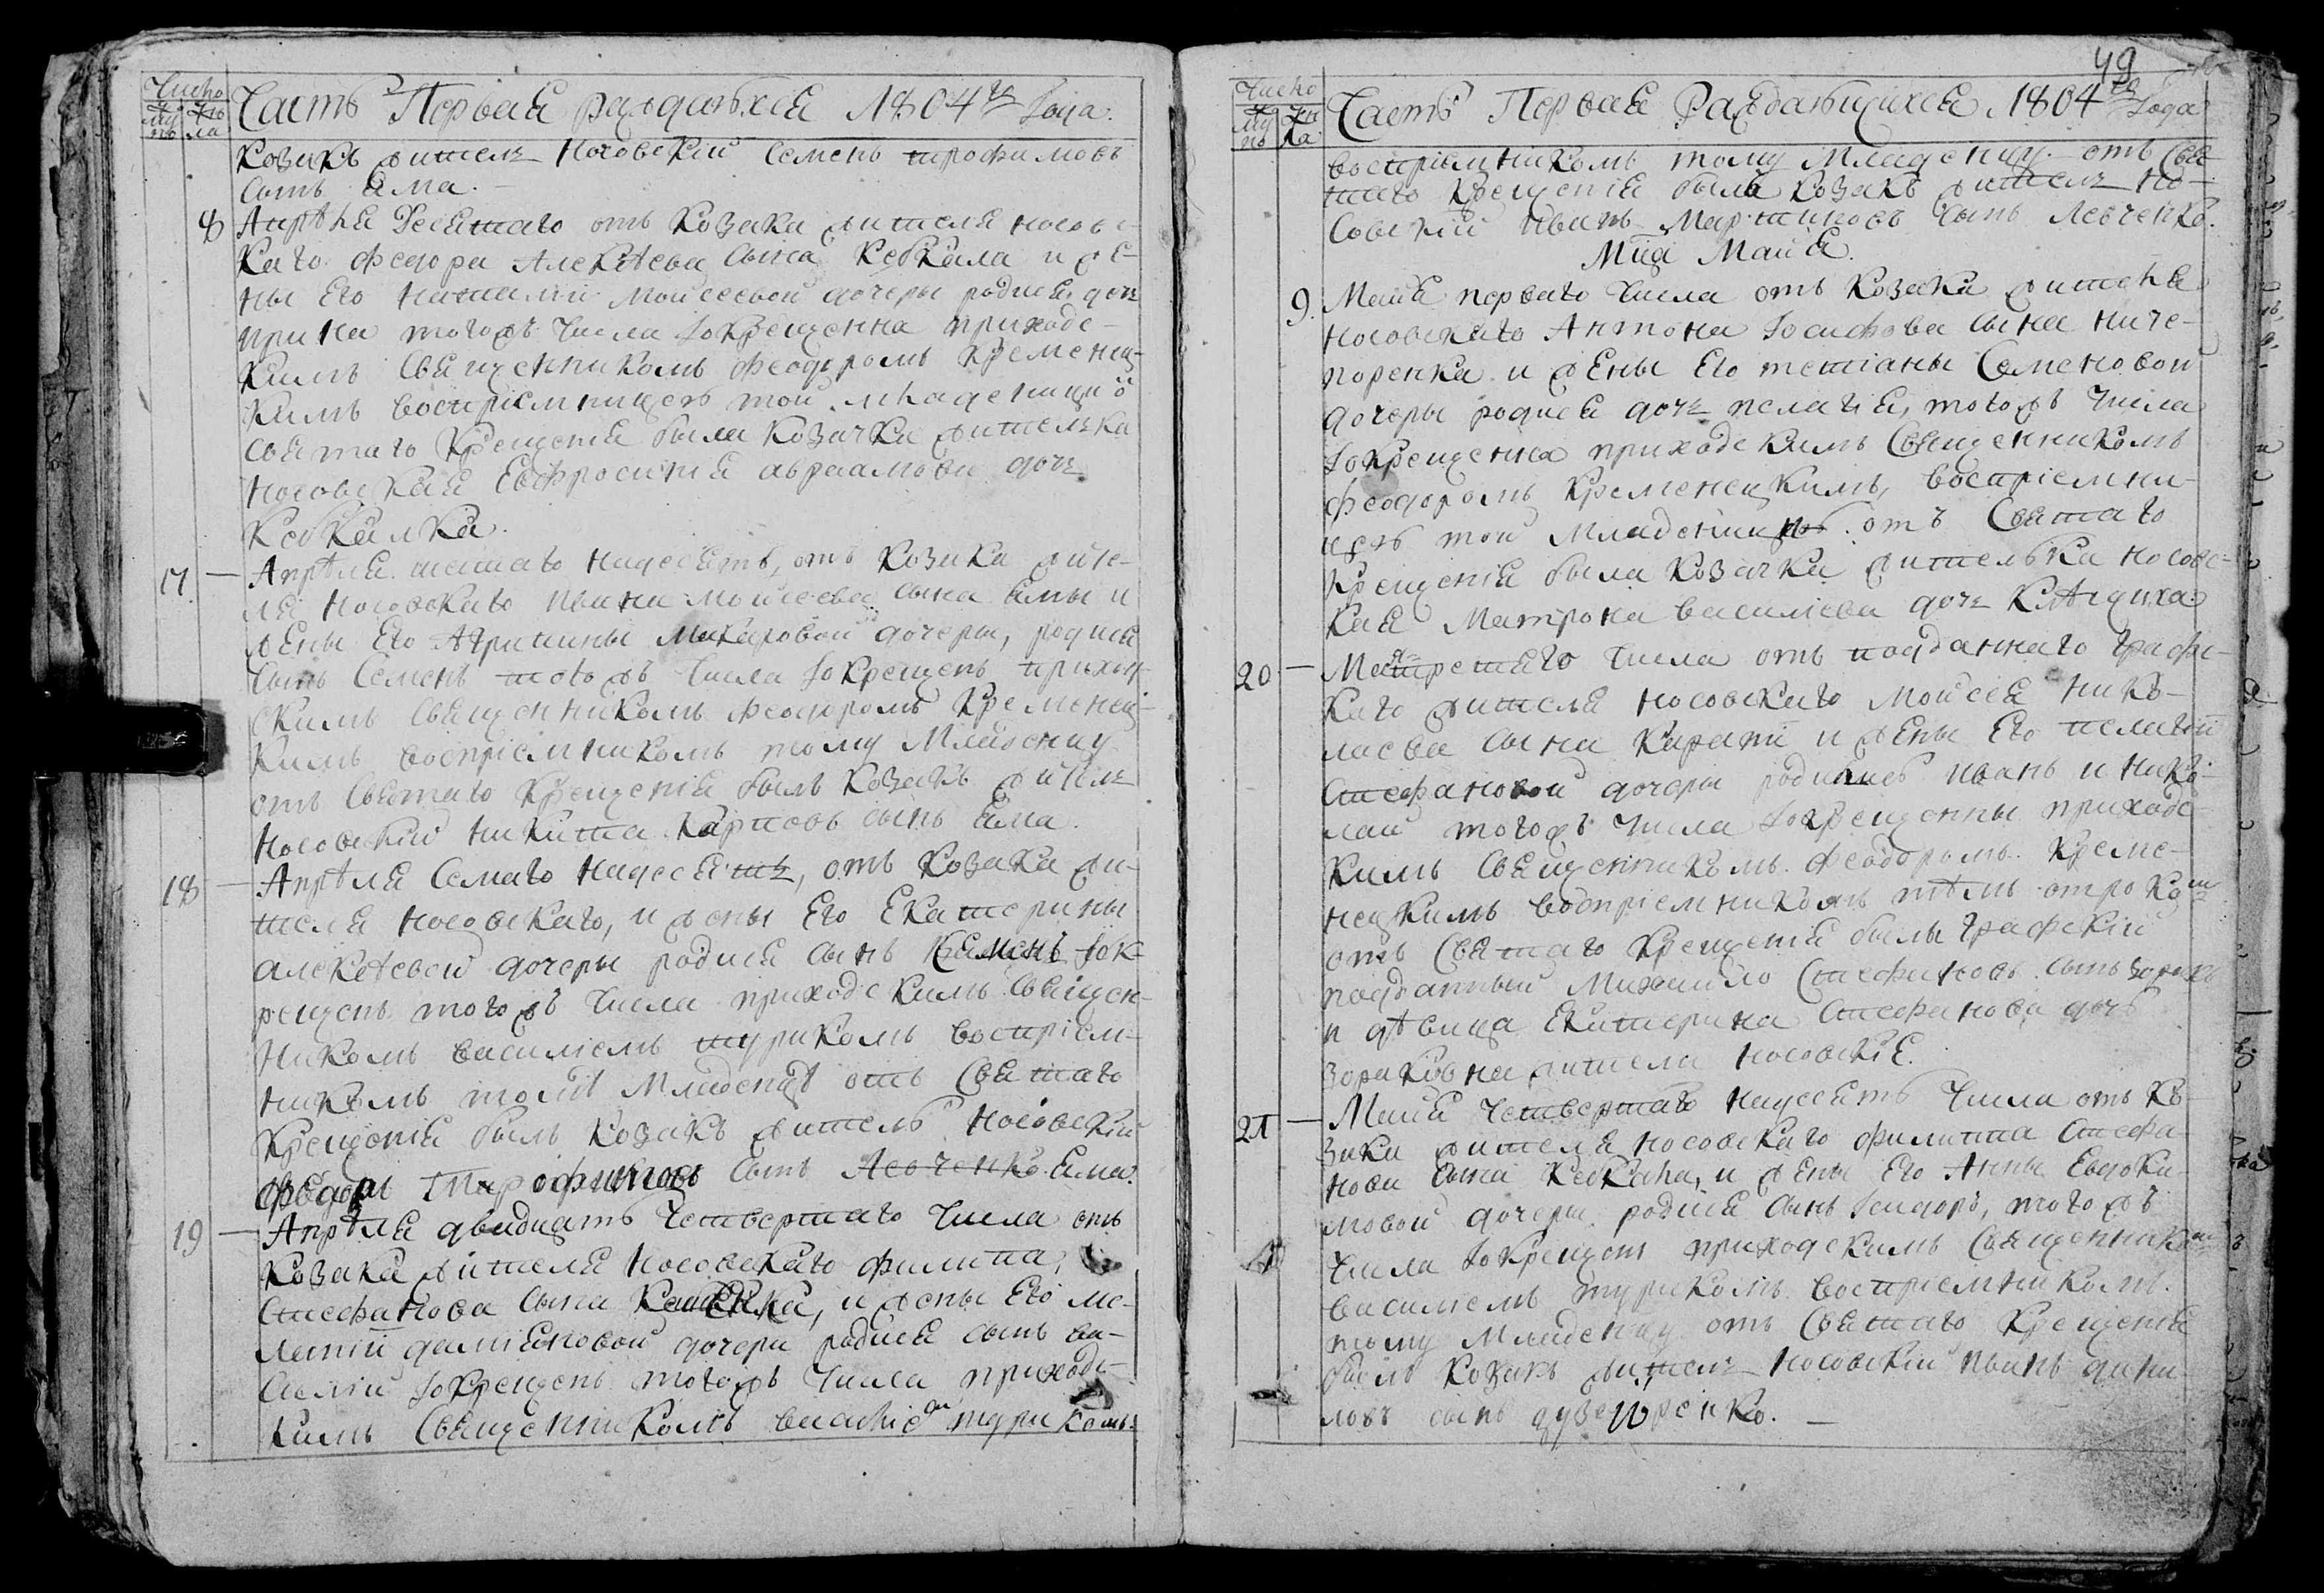 Число
Му Же
пъ ла
Часть Первая раждавшхся 1804го Года.
Козакъ житель Носовскій Семенъ трофимовъ
сынъ Яма.
8 Апрѣля Десятаго отъ Козака жителя носовс-
каго федора Алексѣева сына Кевкала и же-
ны Его Наталіи Моисеевой дочеры родися дочь
тогожъ числа Iокрещенна приходс-
кимъ Священникомъ Феодоромъ Кременец-
кимъ воспріемницею той младеницы ѿ
Святаго Крещенія была Козачка жителька
Носовская Евфросинія авраамова дочь
Кевкалка.
17 Апрѣля шестаго надесять, отъ Козака жите-
ля Носовскаго Ивана Моисеева сына Ямы и
жены Его Агрипины Макаровой дочеры, родися
сынъ Семенъ тогожъ числа Iокрещенъ приход-
скимъ Священникомъ Феодоромъ Кременец-
кимъ воспріемникомъ тому Младенцу
отъ Святаго Крещенія былъ Козакъ житель
Носовскій Никита Карповъ сынъ Яма.
18 Апрѣля Семаго Надесять, отъ Козака жи-
теля Носовскаго, и жены Его Екатерины
алексѣевой дочеры родися сынъ Семенъ Iок-
рещенъ тогожъ числа приходскимъ Священ-
никомъ василіемъ турикомъ воспріем-
никомъ тому Младенцу отъ Святаго
Крещенія былъ Козакъ житель Носовскій
федоръ Трофимовъ сынъ Левченко Яма.
19 Апрѣля двадцать Четвертаго Числа отъ
Козака жителя Носовскаго филипа,
Стефанова сына и жены Его ме-
ланіи даміяновой дочери родися сынъ ва-
силій Iокрещенъ тогожъ Числа приходс-
кимъ Священникомъ василіем турикомъ:
49
Число
Му Же
пъ ла
Часть Первая Раждавшихся 1804го Года
воспріемникомъ тому Младенцу отъ Свя-
таго Крещенія былъ Козакъ житель Но-
совскій Иванъ Мартиновъ сынъ Левченко.
Мца Маія.
9. Маія перваго Числа отъ Козака жителя
Носовскаго Антона Iосифова сына ниче-
поренка и жены Его тетіаны Семеновой
дочеры родися дочь пелагія, тогожъ Числа
Iокрещенна приходскимъ Священникомъ
Феодоромъ Кременецкимъ, воспріемни-
цею той Младеницы отъ Святаго
Крещенія была Козачка жителька Носовс-
кая Матрона василіева дочь
20 Маія третяго Числа отъ подданнаго графс-
каго жителя Носовскаго Моисея Нико-
лаева сына и жены Его пелагіи
Стефановой дочеры родились Иванъ и Нико-
лай тогожъ Числа Iокрещенны приходс-
кимъ Священникомъ Феодоромъ Креме-
нецкимъ воспріемникомъ тѣмъ отрокомъ
отъ Святаго Крещенія былы графскій
подданный Михайло Стефановъ сынъ
и дѣвица Екатерина Стефанова дочь
жители Носовскіе.
21 Маія Четвертаго Надесять Числа отъ Ко-
зака жителя Носовскаго филиппа Стефа-
нова сына Кевкала, и жены Его Анны Евдоки-
мовой дочеры родися сынъ Iсидоръ, тогожъ
Числа Iокрещенъ приходскимъ Священникомъ
василіемъ турикомъ воспріемникомъ
тому Младенцу отъ Святаго Крещенія
былъ Козакъ житель Носовскій Иванъ дани-
ловъ сынъ